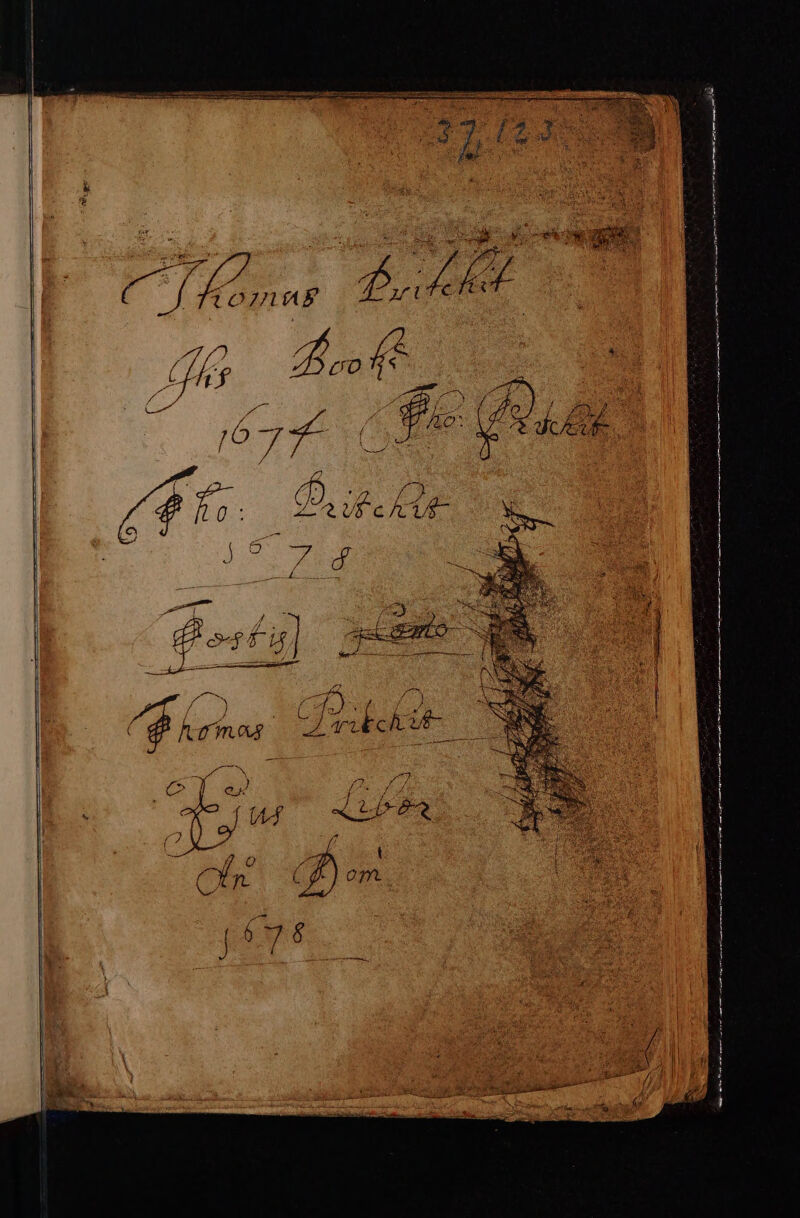 37,123
Thomas Pritchit
His Booke
1674 Tho: Pritchit
Tho: Pritchit
1678
Testis
Thomas Pritchit
Ejus Liber
An° Dom
1678